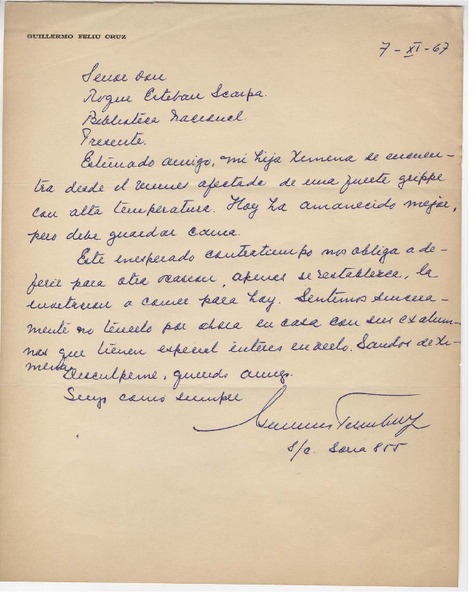 GUILLERMO FELIU CRUZ
7-XI-67
Señor don
Roque Esteban Scarpa.
Biblioteca Nacional.
Presente.
Estimado amigo, mi hija Ximena se encuen-
tra desde el viernes afectada de una fuerte grippe
con alta temperatura. Hoy ha amanecido mejor,
pero debe guardar cama.
Este inesperado contratiempo nos obliga a de-
ferir para otra ocasion, apenas se restablezca, la
invitacion a comer para hoy. Sentimos sincera-
mente no tenerlo por ahora en casa con sus exalum-
nas que tienen especial interes en verlo. Saludos de Xi-
mena.
Discúlpeme, querido amigo.
Suyo como siempre
s/c.